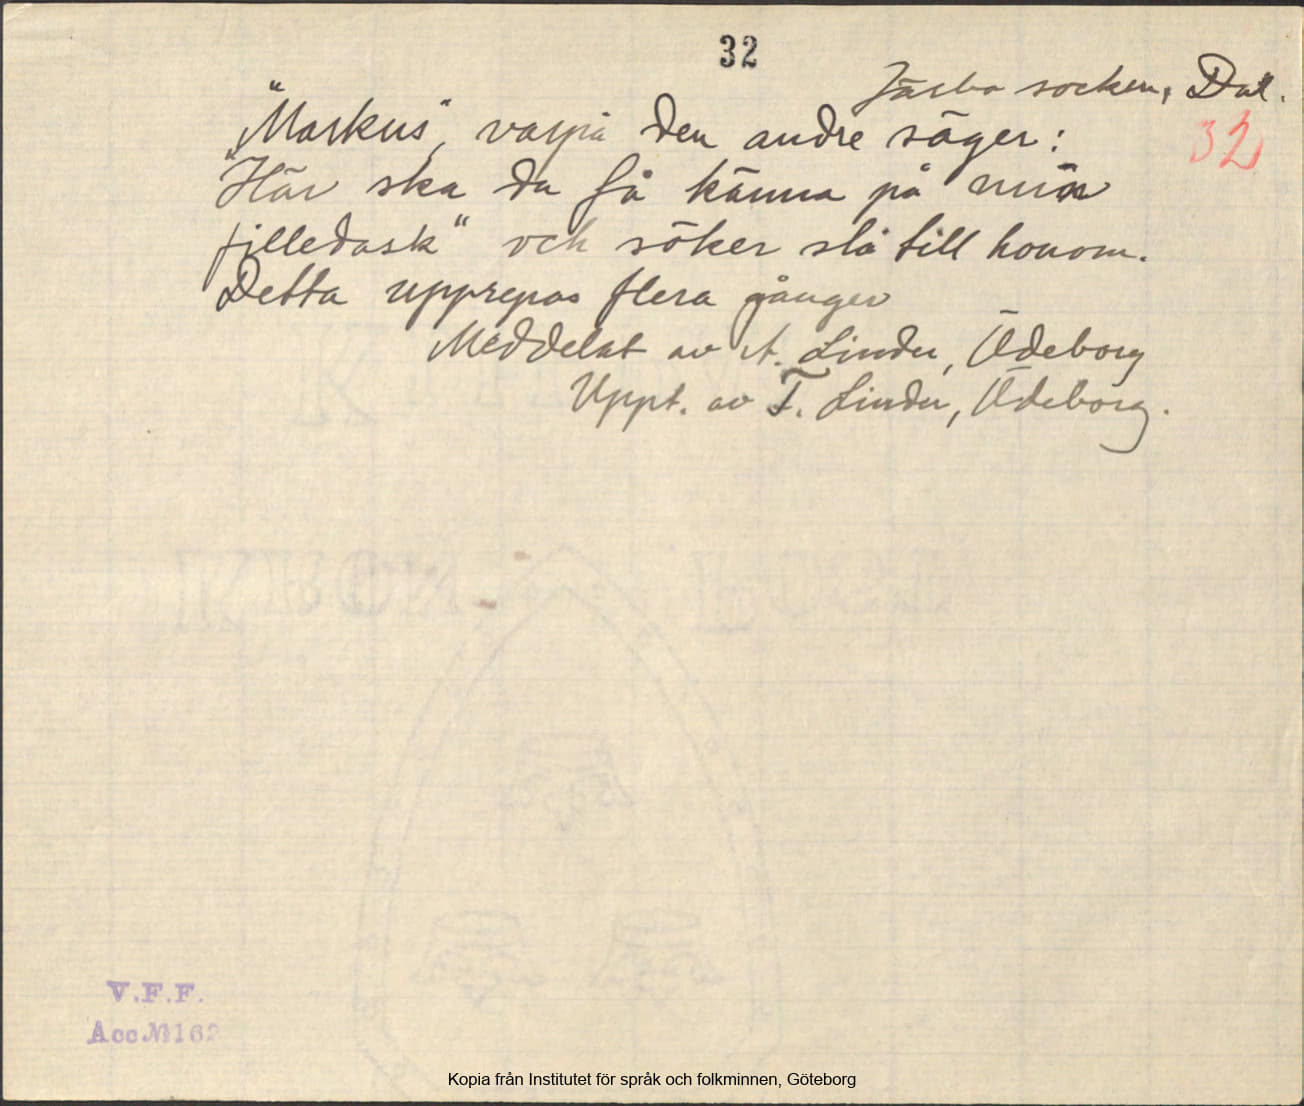 32
Järbo socken, Dal.
32
"Markus", varpå den andre säger:
"Här ska du få känna på min
filledask" och söker slå till honom.
Detta upprepas flera gånger
Meddelat av A. Linder, Ödeborg
Uppt. av F. Linder, Ödeborg.
KRON
V.F.F.
Acc.№162
Kopia från Institutet för språk och folkminnen, Göteborg